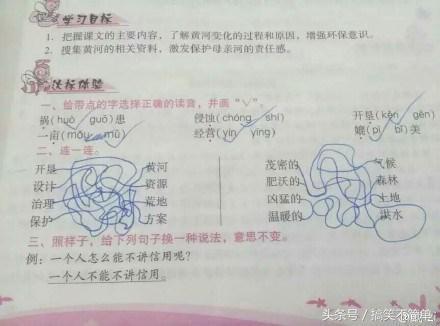 学习目标
1. 把握课文的主要内容，了解黄河变化的过程和原因，增强环保意识。
2. 搜集黄河的相关资料，激发保护母亲河的责任感。
达标体验
一、给带点的字选择正确的读音，并画“√”。
祸(huò guō)患 侵蚀(chóng shí) 开垦(kěn gěn)
一亩(mǒu mǔ) 经营(yín yíng) 媲(pì bǐ)美
二、连一连。
开垦 黄河 茂密的 气候
设计 资源 肥沃的 森林
治理 荒地 凶猛的 土地
保护 方案 温暖的 洪水
三、照样子，给下列句子换一种说法，意思不变。
例：一个人怎么能不讲信用呢？
一个人不能不讲信用。
头条号 / 搞笑不简单